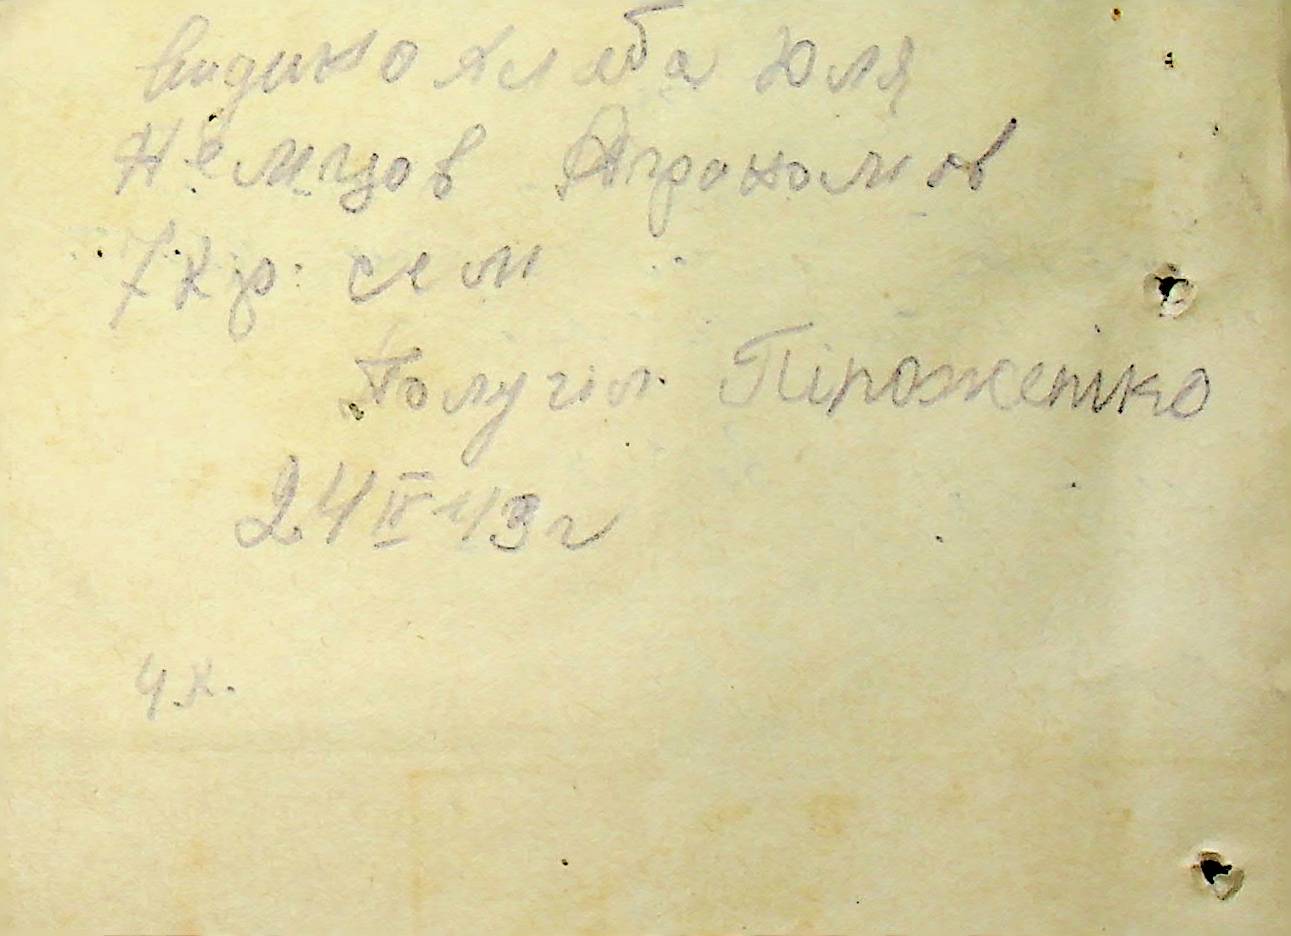 видино хлеба Юля
Немцов Агрономов
7 кр. сем
Получил Пироженко
24 IV 43 г
4 х.